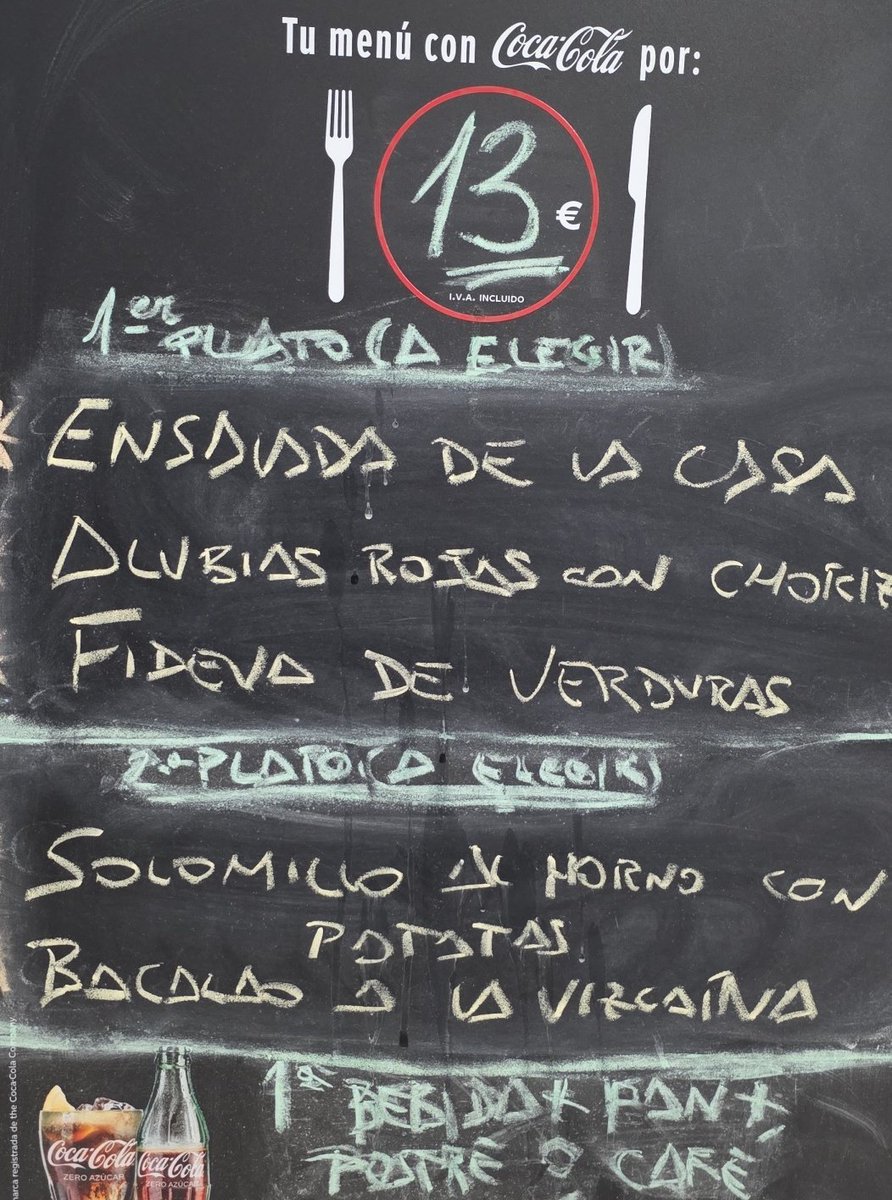 Tu menú con Coca-Cola por:
13 €
I.V.A. INCLUIDO
1er PLATO (A ELEGIR)
ENSALADA DE LA CASA
ALUBIAS ROJAS CON CHORIZ
FIDEUA DE VERDURAS
2º PLATO (A ELEGIR)
SOLOMILLO AL HORNO CON
PATATAS
BACALAO A LA VIZCAÍNA
1ª BEBIDA + PAN +
POSTRE O CAFÉ
Coca-Cola
ZERO AZÚCAR
Coca-Cola
ZERO AZÚCAR
marca registrada de the Coca-Cola Company